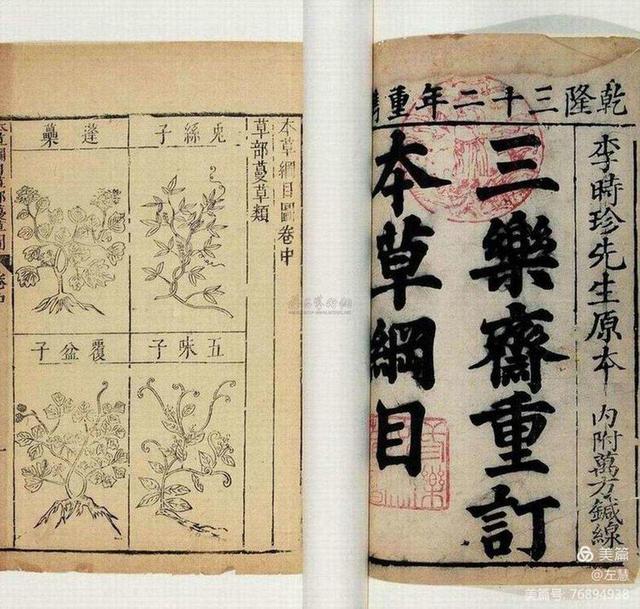 乾隆三十二年重
李時珍先生原本
內附萬方鍼線
三樂齋重訂
本草綱目
本草綱目圖卷中
草部蔓草類
兎絲子
蓬虆
五味子
覆盆子
美篇
@左慧
美篇号:76894938